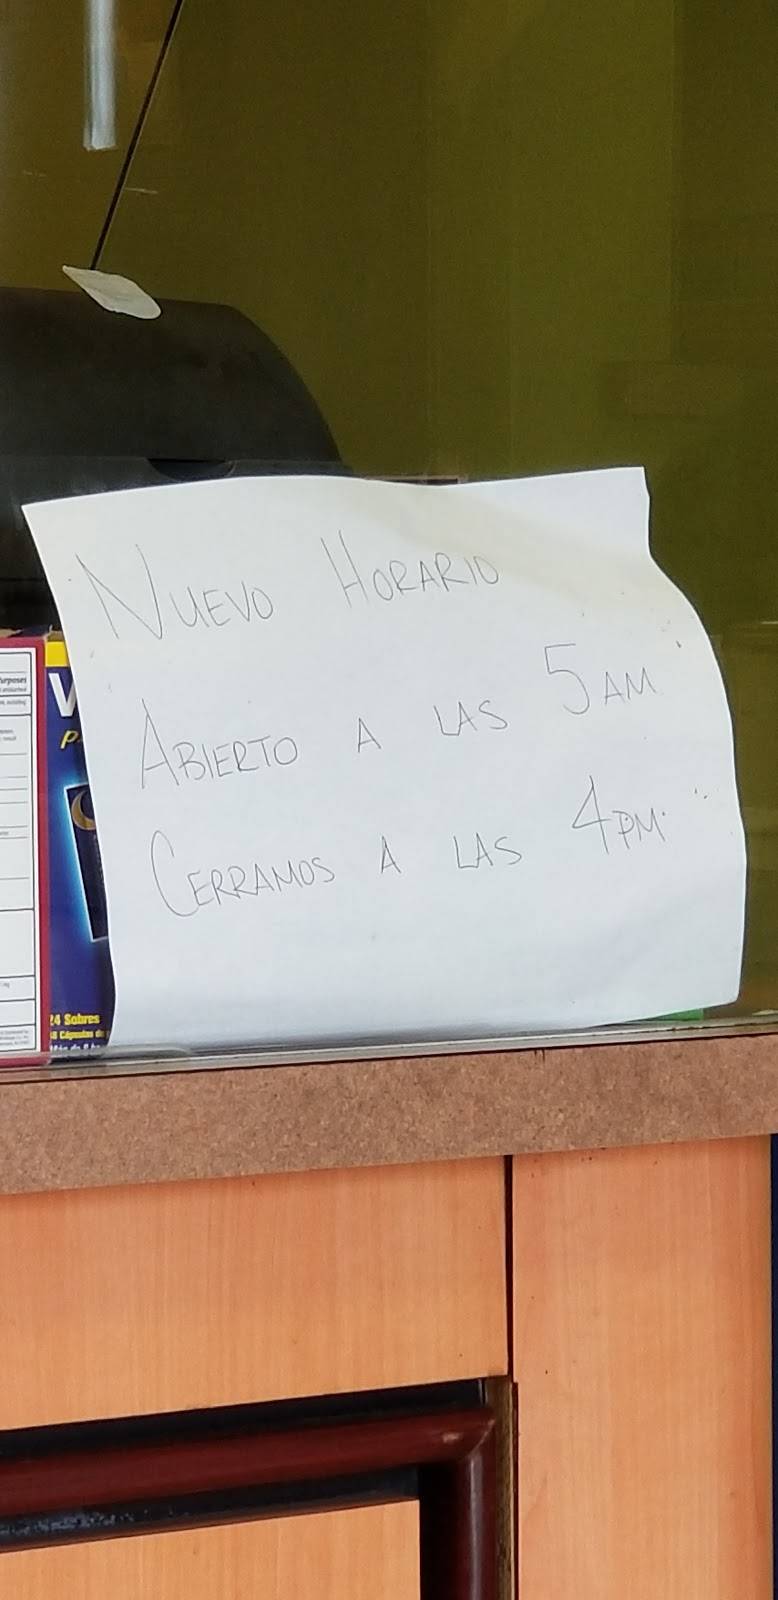 NUEVO HORARIO
ABIERTO A LAS 5AM
CERRAMOS A LAS 4PM
Purposes
V
P
24 Sobres